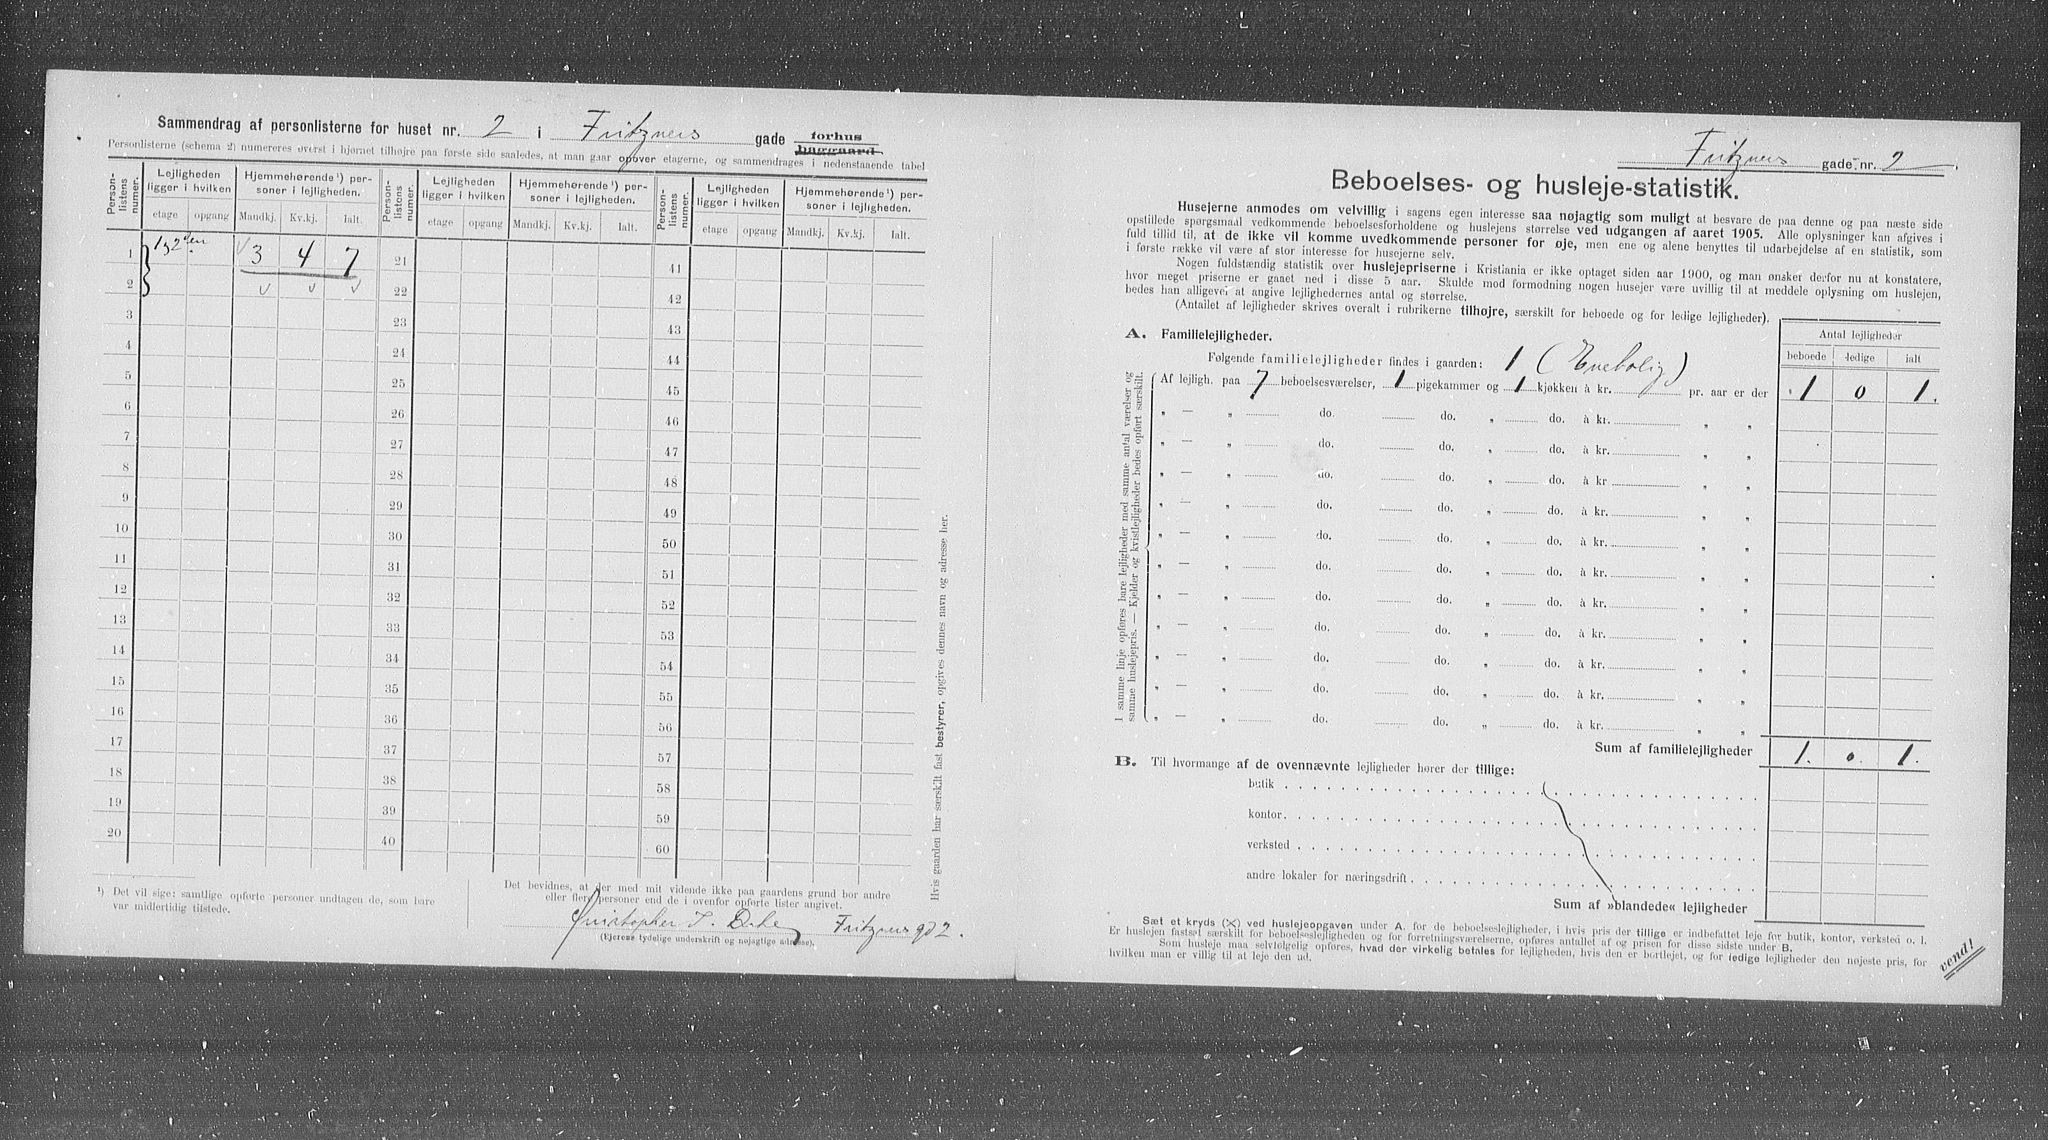 Sammendrag af personlisterne for huset nr. 2 i Fritzners gade forhus baggaard
Personlisterne (schema 2) numereres øverst i hjørnet tilhøjre paa første side saaledes, at man gaar opover etagerne, og sammendrages i nedenstaaende tabel
Person-listens numer. Lejligheden ligger i hvilken Hjemmehørende ¹) personer i lejligheden. Person-listens numer. Lejligheden ligger i hvilken Hjemmehørende ¹) personer i lejligheden. Person-listens numer. Lejligheden ligger i hvilken Hjemmehørende ¹) personer i lejligheden.
etage opgang Mandkj. Kv.kj. Ialt. etage opgang Mandkj. Kv.kj. Ialt. etage opgang Mandkj. Kv.kj. Ialt.
1 3 4 7 21 41
2 22 42
3 23 43
4 24 44
5 25 45
6 26 46
7 27 47
8 28 48
9 29 49
10 30 50
11 31 51
12 32 52
13 33 53
14 34 54
15 35 55
16 36 56
17 37 57
18 38 58
19 39 59
20 40 60
Hvis gaarden har særskilt fast bestyrer, opgives dennes navn og adresse her.
¹) Det vil sige: samtlige opførte personer undtagen de, som bare
var midlertidig tilstede.
Det bevidnes, at der med mit vidende ikke paa gaardens grund bor andre
eller flere personer end de i ovenfor opførte lister angivet.
Christopher Fritzners gd 2.
(Ejerens tydelige underskrift og nøjagtige adresse).
Fritzners gade nr. 2
Beboelses- og husleje-statistik.
Husejerne anmodes om velvillig i sagens egen interesse saa nøjagtig som muligt at besvare de paa denne og paa næste side
opstillede spørgsmaal vedkommende beboelsesforholdene og huslejens størrelse ved udgangen af aaret 1905. Alle oplysninger kan afgives i
fuld tillid til, at de ikke vil komme uvedkommende personer for øje, men ene og alene benyttes til udarbejdelse af en statistik, som
i første række vil være af stor interesse for husejerne selv.
Nogen fuldstændig statistik over huslejepriserne i Kristiania er ikke optaget siden aar 1900, og man ønsker derfor nu at konstatere,
hvor meget priserne er gaaet ned i disse 5 aar. Skulde mod formodning nogen husejer være uvillig til at meddele oplysning om huslejen,
bedes han alligevel at angive lejlighedernes antal og størrelse.
(Antallet af lejligheder skrives overalt i rubrikerne tilhøjre, særskilt for beboede og for ledige lejligheder).
A. Familielejligheder.
Antal lejligheder
Følgende familielejligheder findes i gaarden: 1 (Enebolig)
beboede ledige ialt
Af lejligh. paa 7 beboelsesværelser, 1 pigekammer og 1 kjøkken à kr. pr. aar er der 1 0 1.
„ — „ do. do. „ do. à kr. „ „
„ — „ do. do. „ do. à kr. „ „
„ — „ do. do. „ do. à kr „ „
„ — „ do. do. „ do. à kr. „ „
„ — „ do. do. „ do. à kr. „ „
„ — „ do. do. „ do. à kr. „ „
„ — „ do. do. „ do. à kr. „ „
„ — „ do. do. „ do. à kr. „ „
„ — „ do. do. „ do. à kr. „ „
„ — „ do. do. „ do. à kr. „ „
„ — „ do. do. „ do. à kr. „ „
I samme linje opføres bare lejligheder med samme antal værelser og
samme huslejepris. — Kjelder og kvistlejligheder bedes opført særskilt.
Sum af familielejligheder 1. 0. 1.
B. Til hvormange af de ovennævnte lejligheder hører der tillige:
butik
kontor
verksted
andre lokaler for næringsdrift
Sum af »blandede« lejligheder
Sæt et kryds (×) ved huslejeopgaven under A. for de beboelseslejligheder, i hvis pris der tillige er indbefattet leje for butik, kontor, verksted o. l.
Er huslejen fastsat særskilt for beboelseslejligheden og for forretningsværelserne, opføres antallet af og prisen for disse sidste under B.
Som husleje maa selvfølgelig opføres, hvad der virkelig betales for lejligheden, hvis den er bortlejet, og for ledige lejligheder den nøjeste pris, for
hvilken man er villig til at leje den ud.
vend!